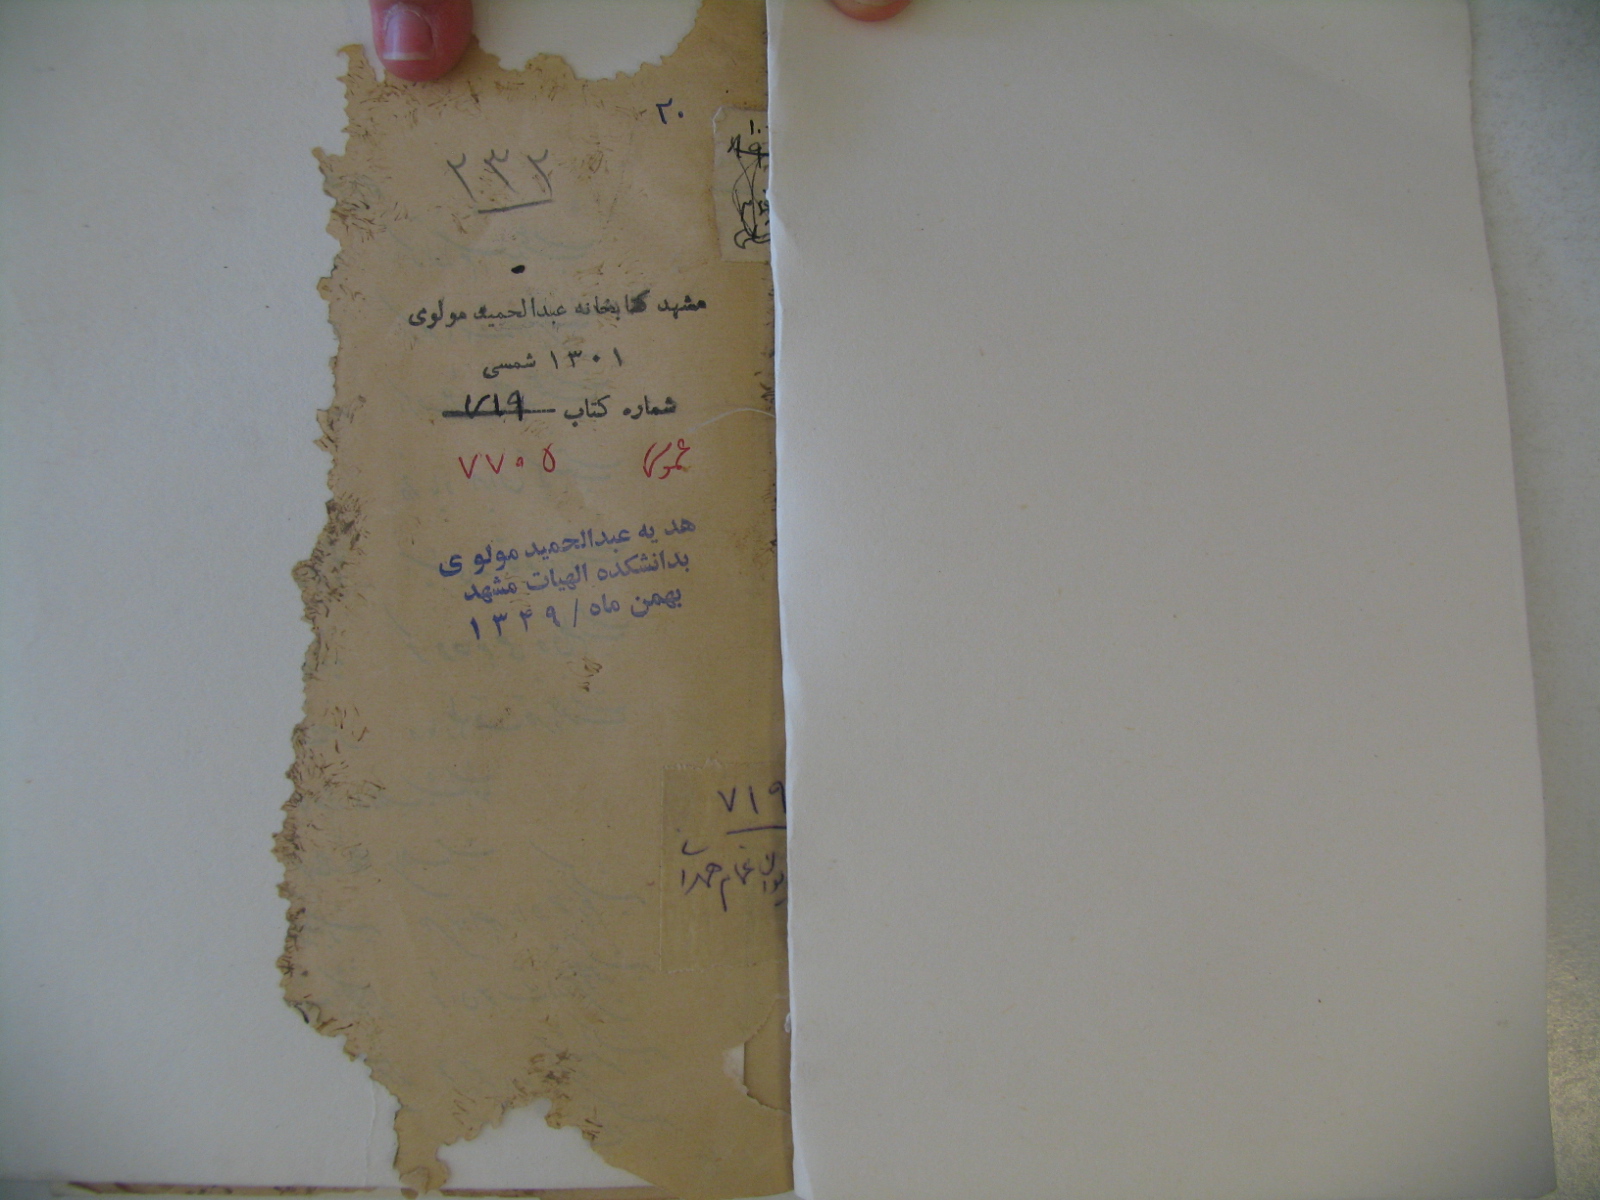 ۲۰
۲۳۲
مشهد کتابخانه عبدالحمید مولوی
۱۳۰۱ شمسی
شماره کتاب ۷۱۹
عمومی ۷۷۰۵
هدیه عبدالحمید مولوی
بدانشکده الهیات مشهد
بهمن ماه / ۱۳۴۹
۷۱۹